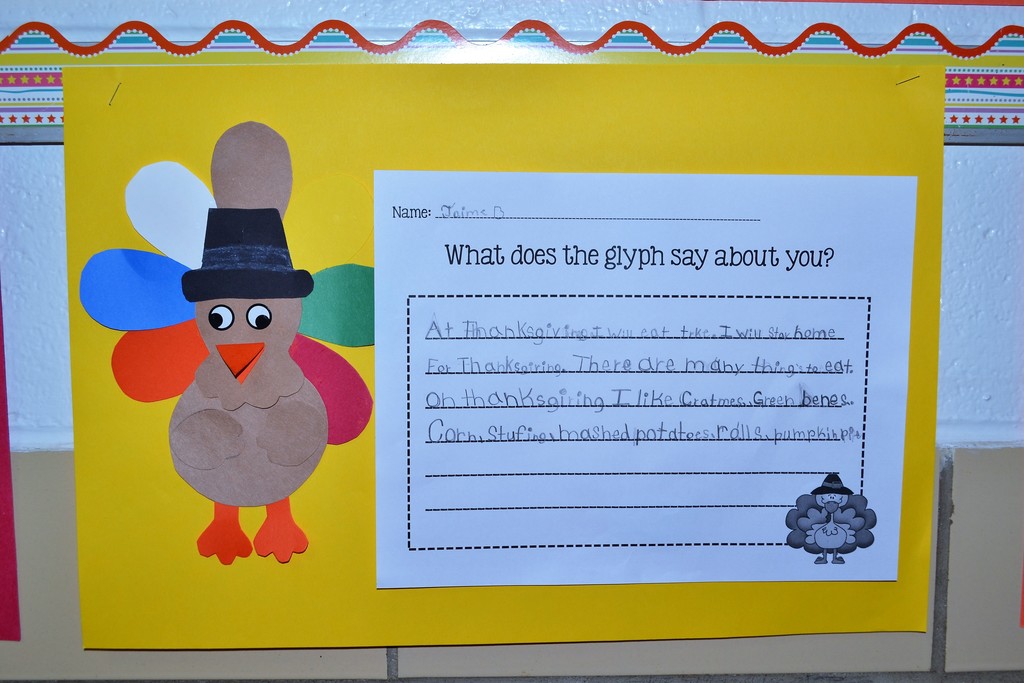 Name: Jaims B
What does the glyph say about you?
At Thanksgiving I will eat terke. I will stay home
For Thanksgiving. There are many things to eat
on thanksgiving I like Cratmes, Green benes.
Corn, Stufing, mashed potatoes, rolls, pumpkin pie